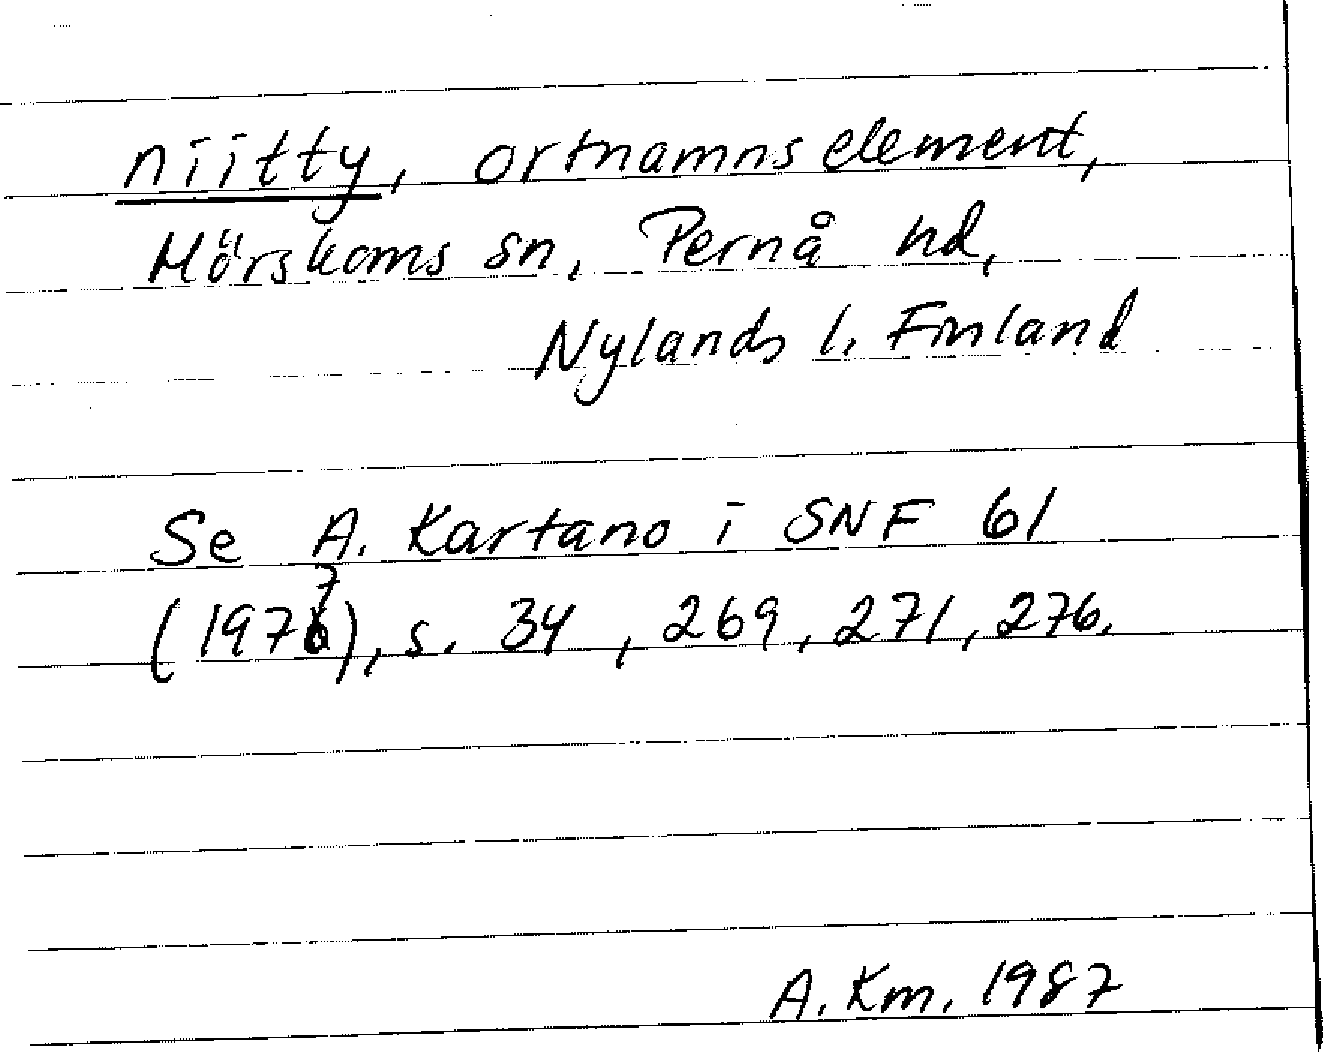 niitty, ortnamnselement,
Mörskoms sn, Pernå hd,
Nylands l, Finland
Se A. Kartano i SNF 61
(1977), s. 34, 269, 271, 276.
A. Km. 1987